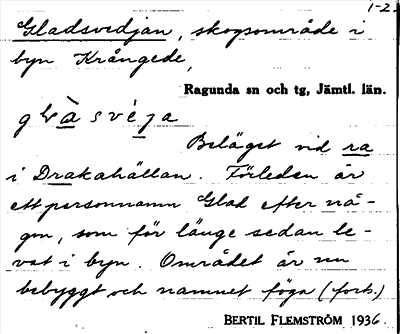 1-2.
Gladsvedjan, skogsområde i
byn Krångede,
Ragunda sn och tg, Jämtl. län.
Beläget vid ra
i Drakahällan. Förleden är
ett personnamn Glad efter nå-
gon, som för länge sedan be-
vat i byn. Området är nu
bebyggt och namnet föga (forts.)
BERTIL FLEMSTRÖM 1936.